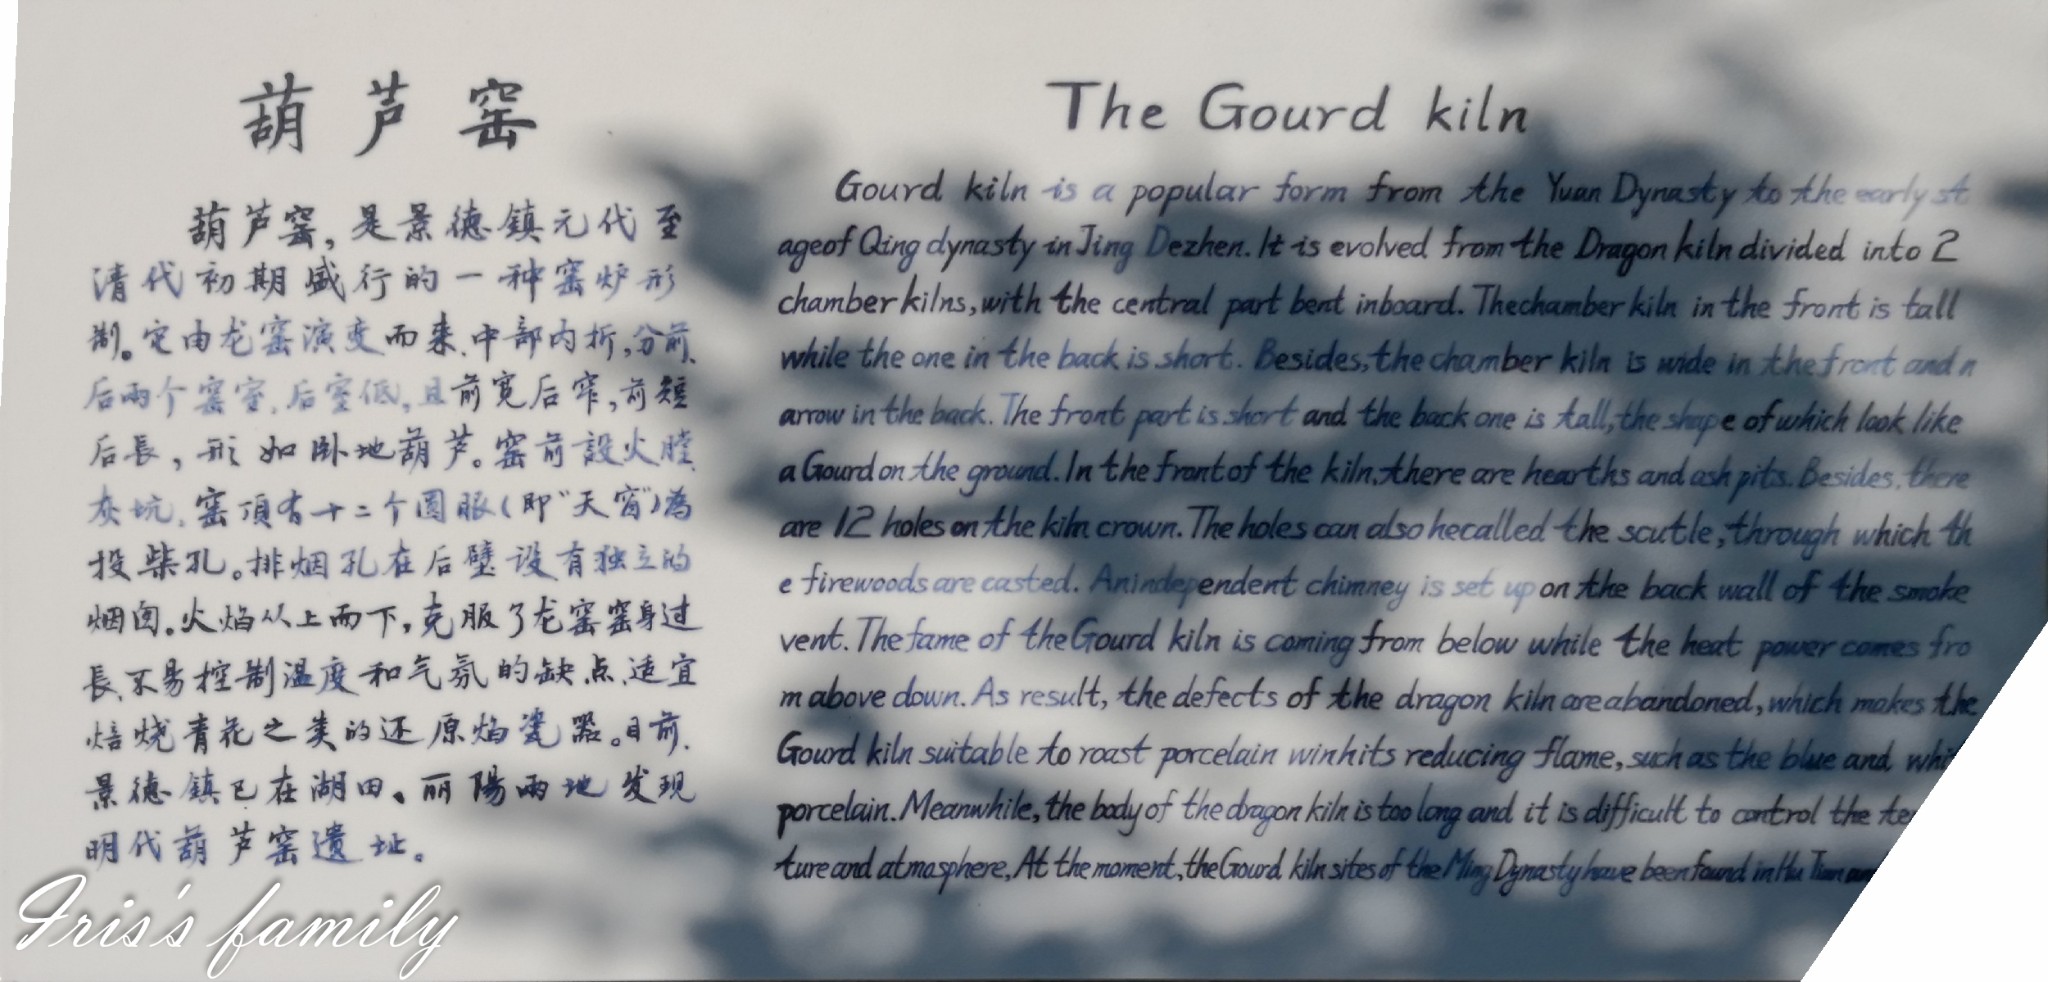 葫芦窑
葫芦窑，是景德鎮元代至
清代初期盛行的一种窑炉形
制。它由龙窑演变而来、中部内折，分前、
后两个窑室，后室低，且前宽后窄，前短
后長，形如卧地葫芦。窑前設火膛、
灰坑，窑頂有十二个圆眼(即“天窗”)為
投柴孔。排烟孔在后壁设有独立的
烟囱。火焰从上而下，克服了龙窑窑身过
長、不易控制温度和气氛的缺点、适宜
焙烧青花之类的还原焰瓷器。目前、
景德鎮已在湖田、丽陽两地发现
明代葫芦窑遺址。
The Gourd kiln
Gourd kiln is a popular form from the Yuan Dynasty to the early st
ageof Qing dynasty in Jing Dezhen. It is evolved from the Dragon kiln divided into 2
chamber kilns, with the central part bent inboard. Thechamber kiln in the front is tall
while the one in the back is short. Besides, the chamber kiln is wide in the front and n
arrow in the back. The front part is short and the back one is tall, the shape of which look like
a Gourd on the ground. In the front of the kiln, there are hearths and ash pits. Besides, there
are 12 holes on the kiln crown. The holes can also hecalled the scutle, through which th
e firewoods are casted. Anindependent chimney is set up on the back wall of the smoke
vent. The fame of the Gourd kiln is coming from below while the heat power comes fro
m above down. As result, the defects of the dragon kiln are abandoned, which makes the
Gourd kiln suitable to roast porcelain winhits reducing flame, such as the blue and whi
porcelain. Meanwhile, the body of the dragon kiln is too long and it is difficult to control the te
ture and atmosphere, At the moment, the Gourd kiln sites of the Ming Dynasty have been found in Hu Tian
Iris's family